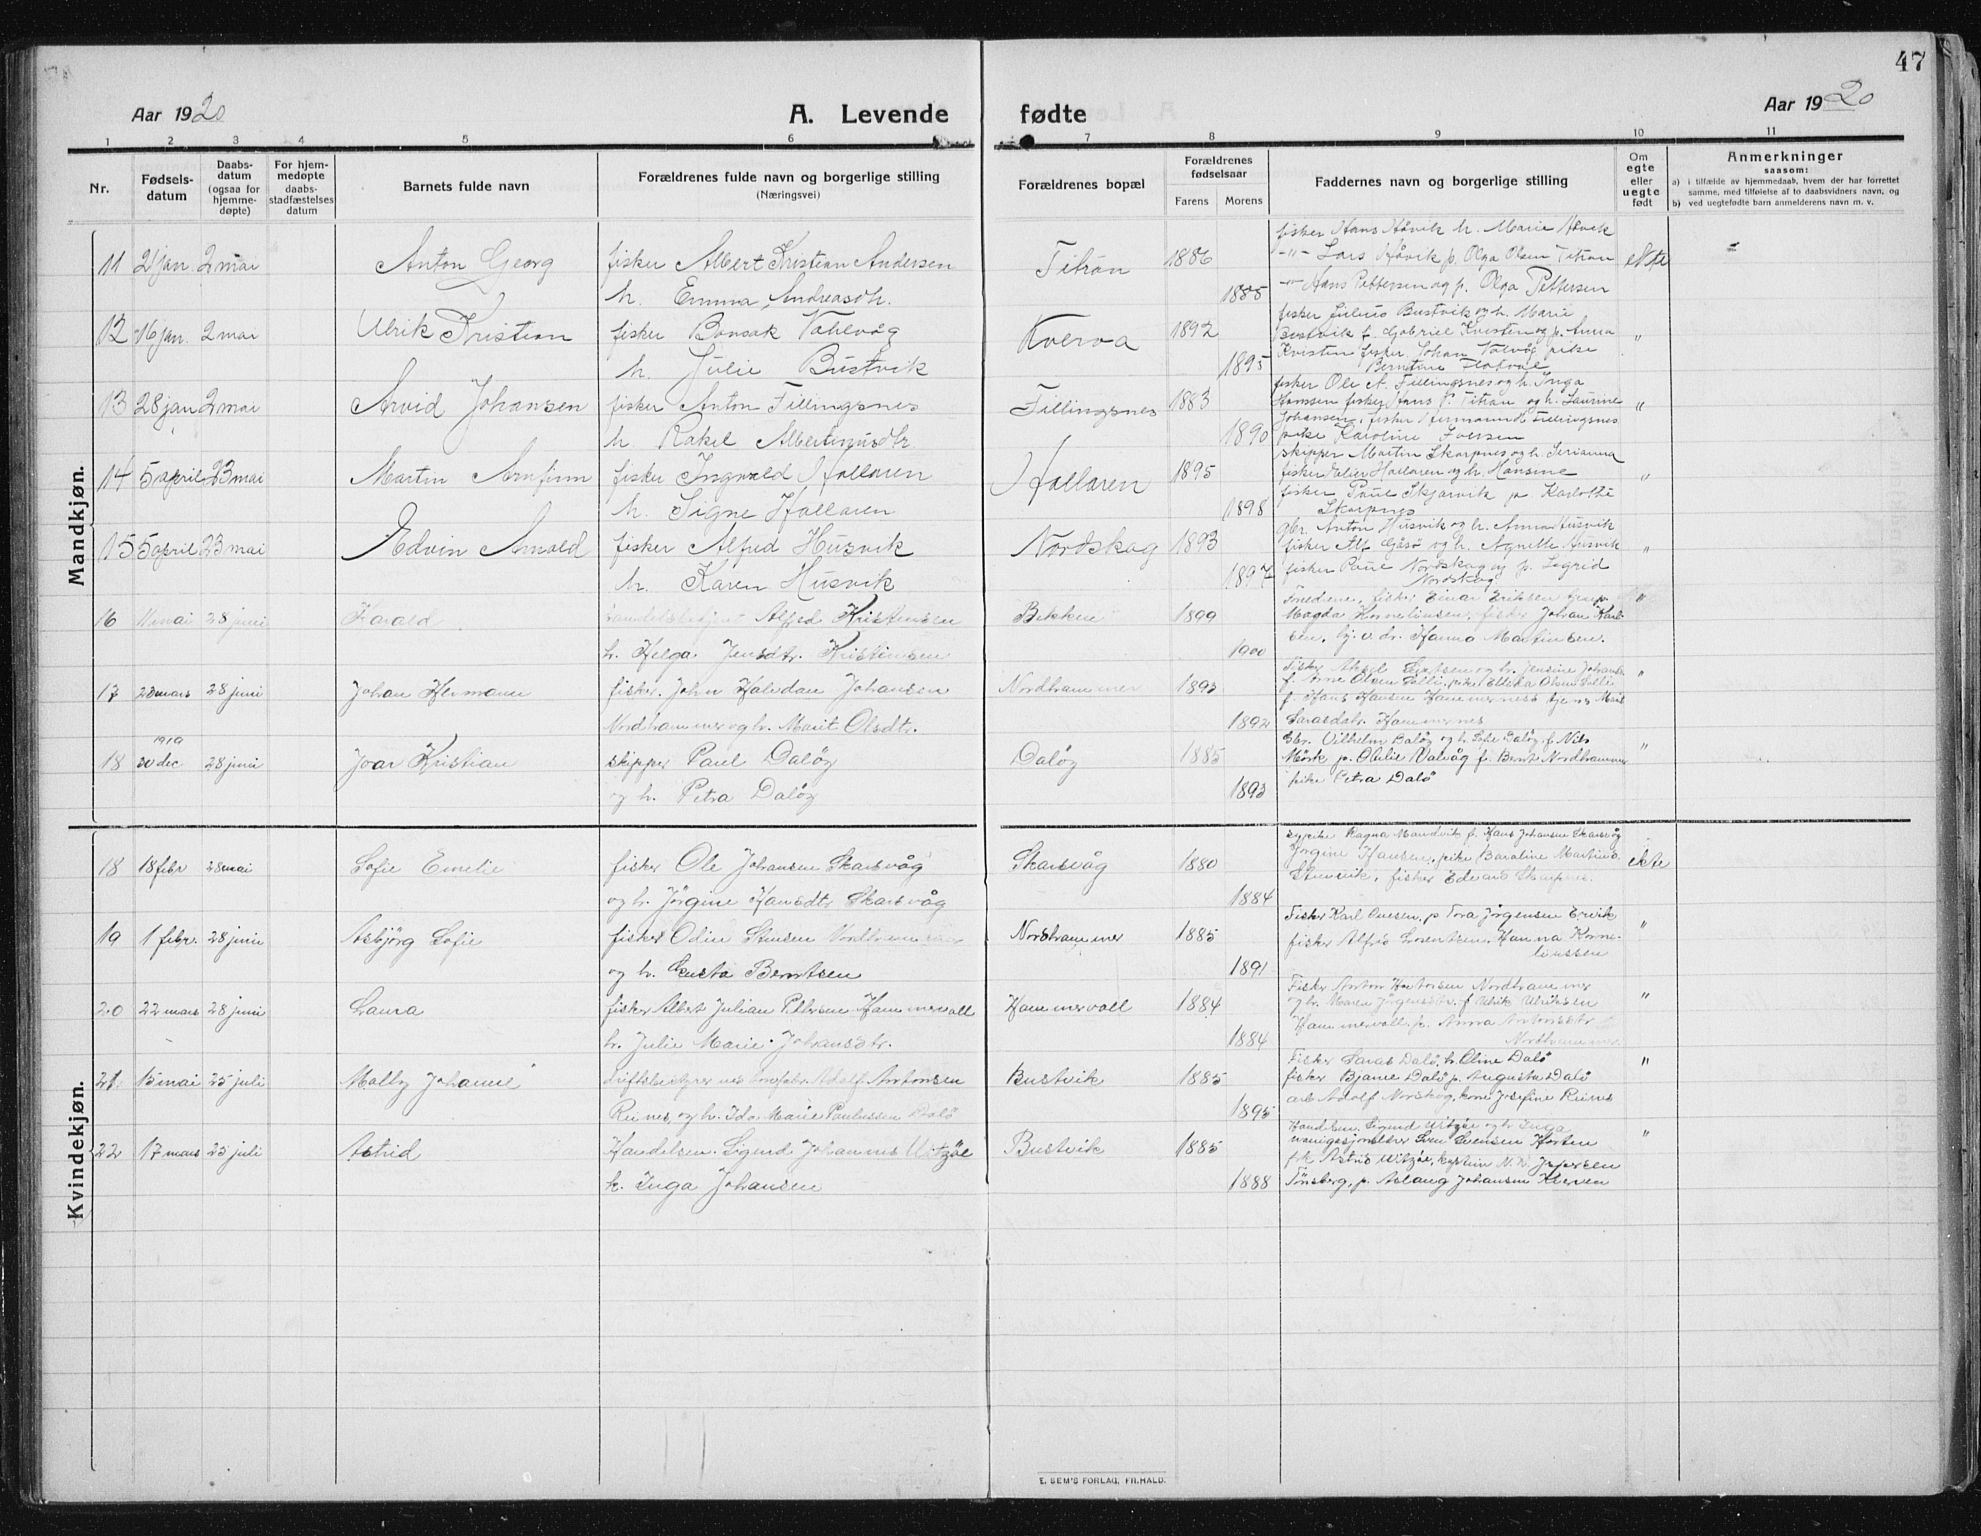 47
Aar 1920
A. Levende fødte
Aar 1920
1 2 3 4 5 6 7 8 9 10 11
Nr.
Fødsels-
datum
Daabs-
datum
(ogsaa for
hjemme-
døpte)
For hjem-
medøpte
daabs-
stadfæstelses
datum
Barnets fulde navn
Forældrenes fulde navn og borgerlige stilling
(Næringsvei)
Forældrenes bopæl
Forældrenes
fødselsaar
Farens Morens
Faddernes navn og borgerlige stilling
Om
egte
eller
uegte
født
Anmerkninger
saasom:
a) i tilfælde av hjemmedaab, hvem der har forrettet
samme, med tilføielse af to daabsvidners navn, og
b) ved uegtefødte barn anmelderens navn m. v.
Mandkjøn.
fisker Hans Håvik h. Marie Håvik
11 2 jan. 2 mai Anton Georg fisker Albert Kristian Andersen Titran 1886 -"- Lars Håvik p. Olga Olsen Titran ekte
h. Emma Andreasdh. 1885 -"- Hans Pettersen og p. Olga Pettersen
fisker Julius Bustvik og h. Marie
12 16 jan. 2 mai Ulrik Kristian fisker Bonsak Vahlvåg Kverva 1892 Bustvik f. Gabriel Kvisten og p. Anna "
h. Julie Bustvik 1895 Kvisten fisker Johan Valvåg pike
fisker Ole A. Fillingsnes og h. Inga
13 28 jan 2 mai Arvid Johansen fisker Anton Fillingsnes Fillingsnes 1883 Hanssen fisker Hans P. Titran og h. Laurine "
h. Rakel Albertinusdtr 1890 Johansen, fisker Hermund Fillingsnes
pike Karoline Iversen
skipper Martin Skarpnes og h.
14 5 april 23 mai Martin Arnfinn fisker Ingvald Hallaren Hallaren 1895 fisker Hallaren og h. Hansine "
h. Signe Hallaren 1898 fisker Paul Skjarvik p Karlotte
Skarpnes
gbr. Anton Husvik og h. Anna Husvik
15 5 april 23 mai Edvin Arnold fisker Alfred Husvik Nordskag 1893 fisker Alf Gåsø og h. Agnette Husvik "
h. Karen Husvik 1897 fisker Paul Nordskag og p. Sigrid
Nordskag
16 11 mai 28 juni Harald Alfred Kristensen Bekken 1899 fisker Einar Eriksen "
h. Helga Jensdtr. Kristensen 1900 Magda Kornelinsen, fisker Johan Karl-
sen, Hanna Martinsen.
17 23 mars 28 juni Johan Hermann fisker. John Halvdan Johansen Nordhammer 1893 f. Arne Olsen "
Nordhammer og h. Marit Olsdtr. 1892 f. Hans Hansen Hammernes
Larasdtr. Hammernes
1919
18 30 dec 28 juni Joar Kristian skipper Paul Daløy Daløy 1885 Gbr. Vilhelm Daløy og h. Sofie Daløy f. Nils "
og h. Petra Daløy 1893 Mørk p. Otilie Valvåg f. Bernt Nordhammer
pike Petra Dalø
Kvindekjøn.
Ragna Mandvik f. Hans Johansen Skarsvåg
18 18 febr 28 mai Sofie Emelie fisker Ole Johansen Skarsvåg Skarsvåg 1880 Jørgine Hansen, pike ekte
og h. Jörgine Hansdtr Skarsvåg 1884 Stensvik, fisker Edvard Skarpnes.
19 1 febr. 28 juni Asbjörg Sofie fisker Odin Stensen Nordhammer Nordhammer 1885 Fisker Karl Ovesen, p Tora Jørgensen Ervik "
og h. Gusta Berntsen 1891 fisker Alfred Lorentzen, Hanna Korne-
liussen
20 22 mars 28 juni Laura fisker Albert Julian Pettersen Hammervall Hammervoll 1884 Fisker Anton Nordhammer "
h. Julie Marie Johansdtr. 1884 og h. Maren Jörgensdtr. f. Ulrik Ulriksen
Hammervoll, p. Anna Antonsdtr
Nordhammer
21 15 mai 25 juli Molly Johanne Adolf Antonsen Bustvik 1885 Fisker Laras Dalø, h. Oline Dalø "
Reines, og h. Ida Marie Paulussen Dalø 1895 fisker Bjarne Dalø p. Augusta Dalø
arb Adolf Norskog, kone Josefine Reines
22 17 mars 25 juli Astrid Handelsm. Sigurd Johannes Witzøe Bustvik 1885 Handelsm. Sigurd Witzøe og h. Inga "
h. Inga Johansen 1888 Sven Svensen Horten
frk Astrid Witzøe, kaptein N. N. Jespersen
Tönsberg, p. Aslaug Johansen Kleven
E. SEM'S FORLAG, FR.HALD.